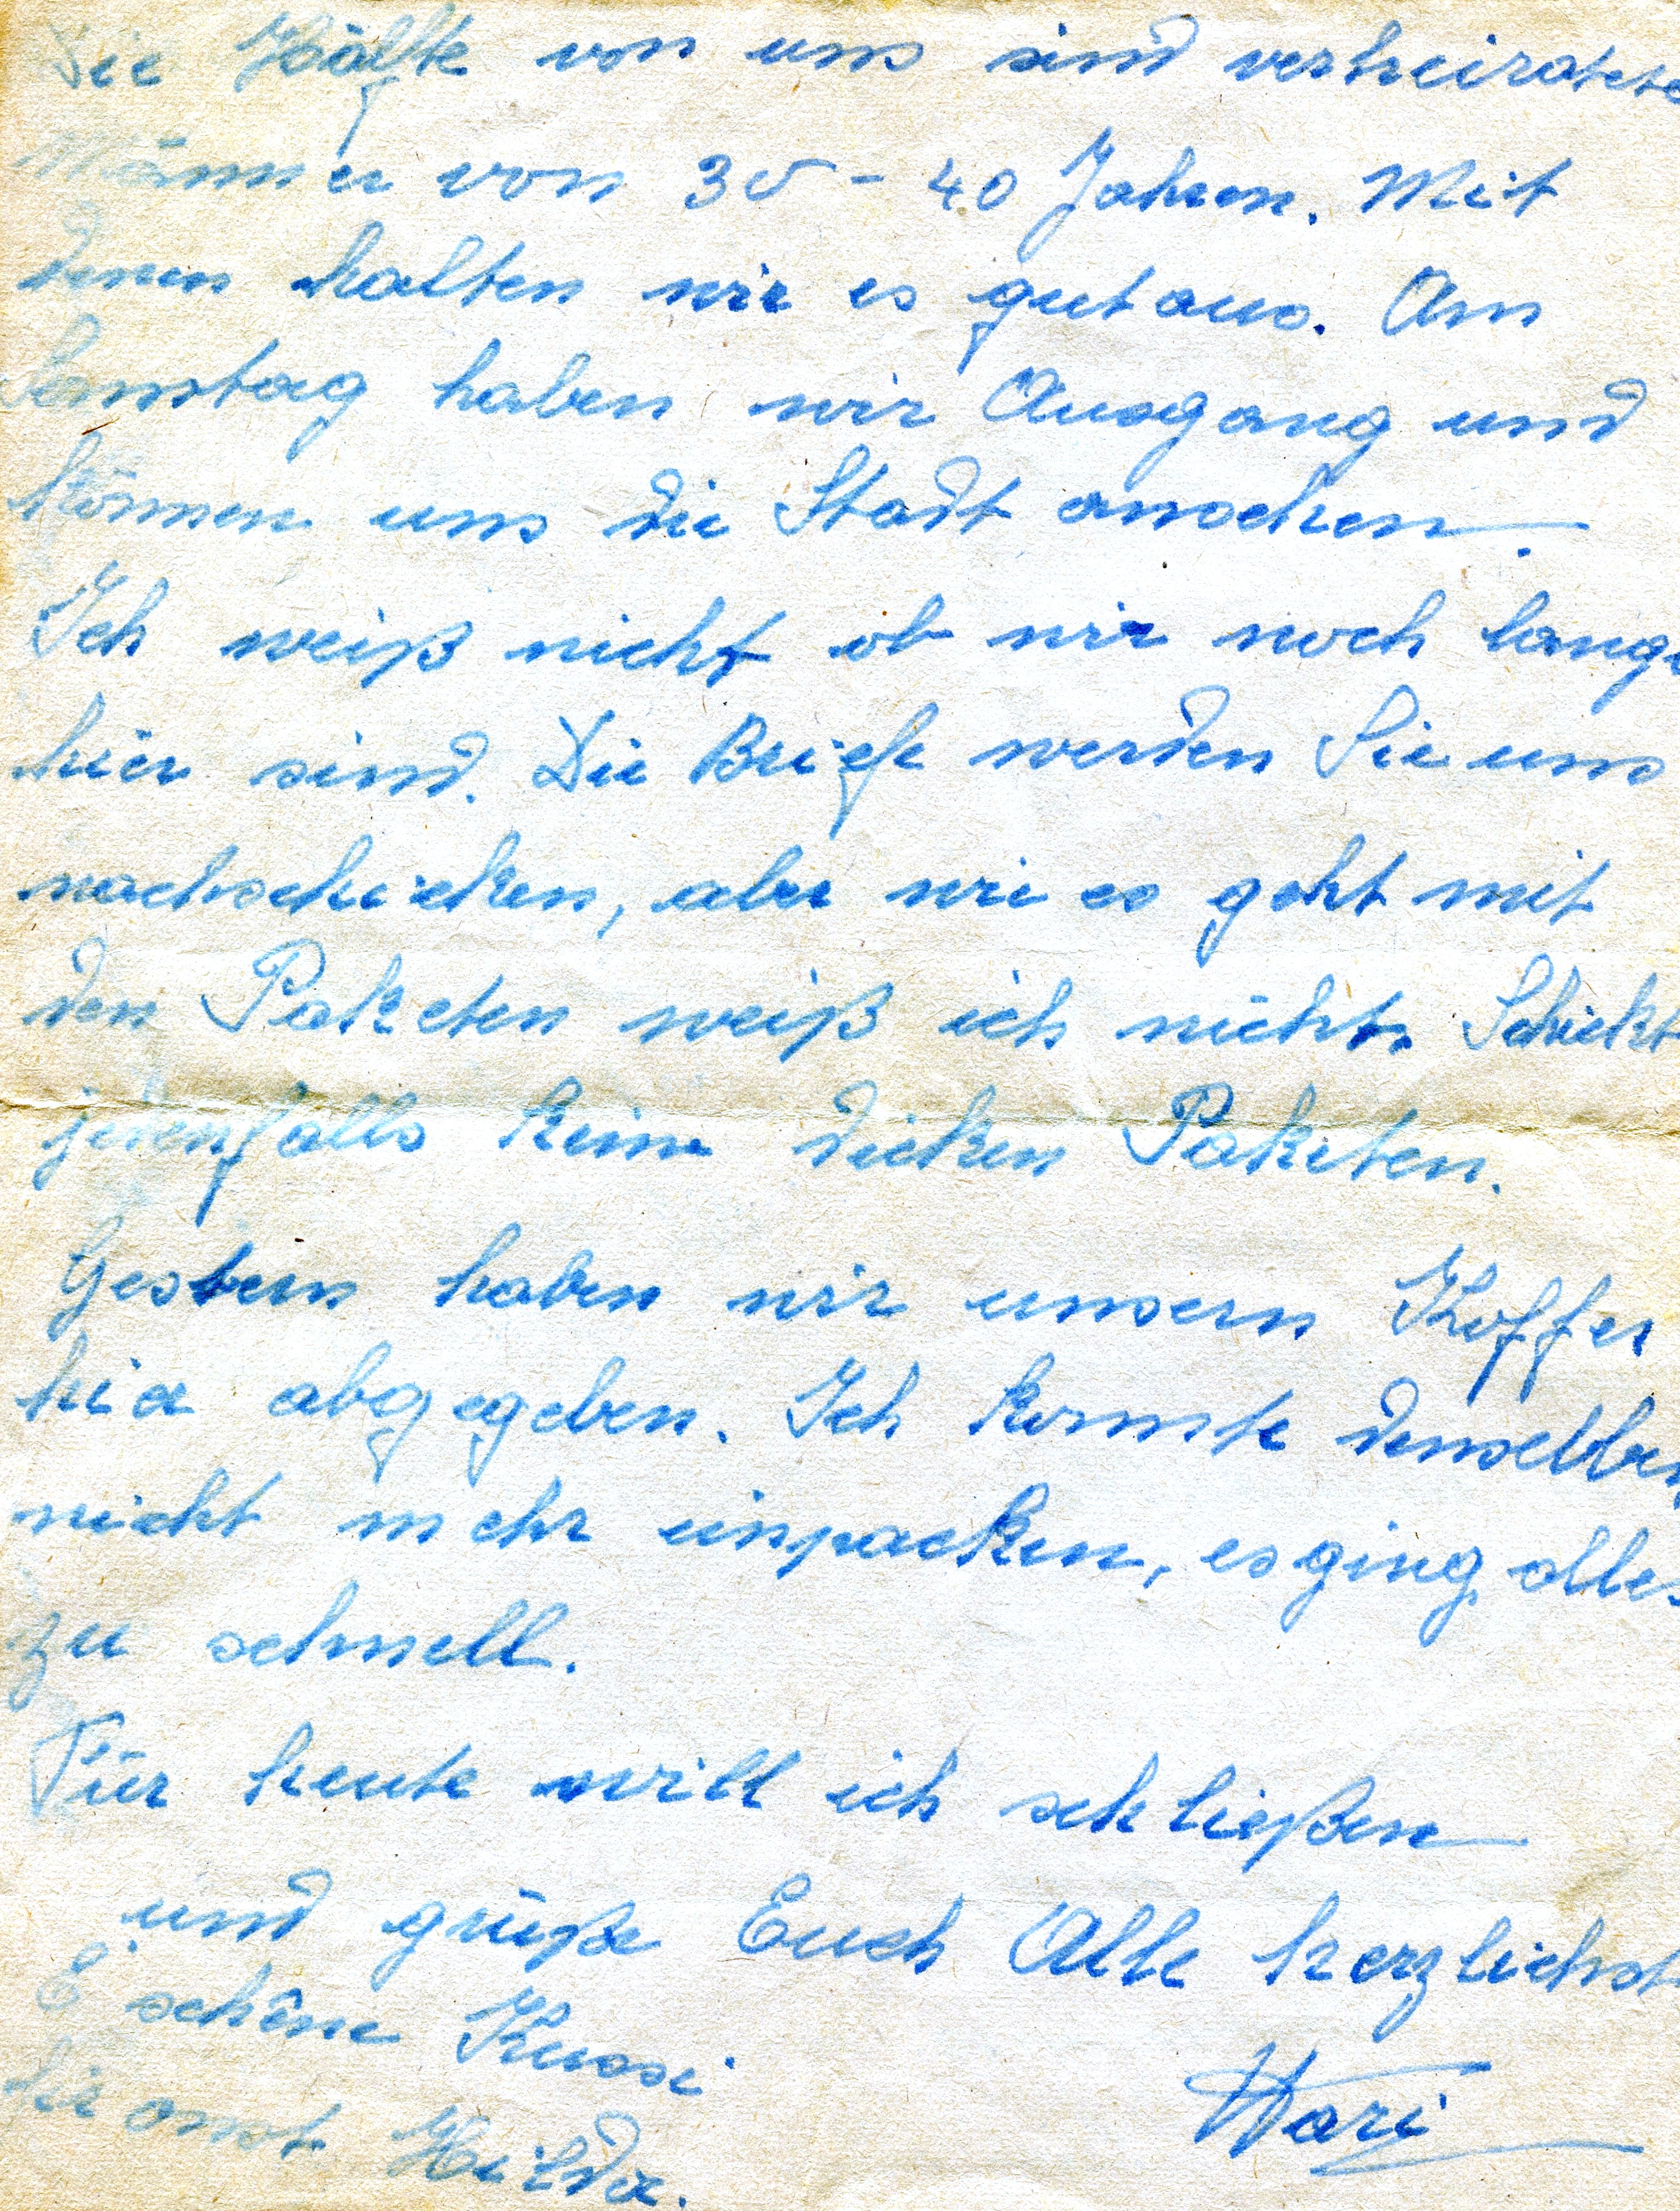 Die Hälfte von uns sind verheiratete
Männer von 30 - 40 Jahren. Mit
denen halten wir es gut aus. Am
Samstag haben wir Ausgang und
können uns die Stadt ansehen.
Ich weiß nicht ob wir noch lange
hier sind. Die Briefe werden Sie uns
nachschicken, aber wie es geht mit
den Paketen weiß ich nicht. Schickt
jedenfalls keine dicken Paketen.
Gestern haben wir unsern Koffer
hier abgegeben. Ich konnte denselben
nicht mehr einpacken, es ging alles
zu schnell.
Für heute will ich schließen
und grüße Euch Alle herzlichst
E schêne Kussi
fir onst Hilda.